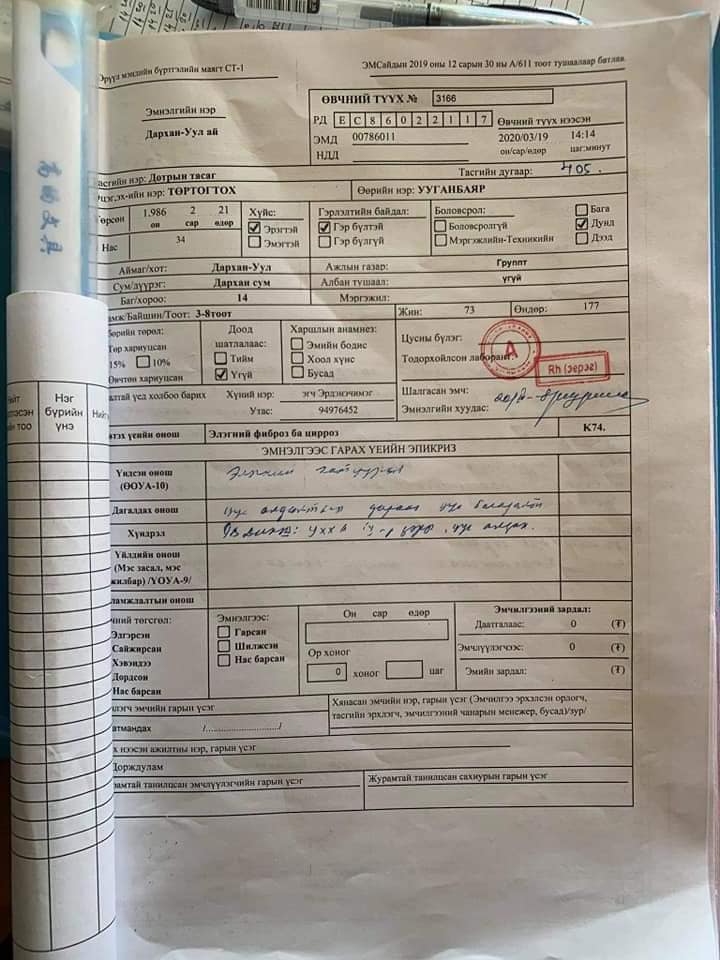 Эрүүл мэндийн бүртгэлийн маягт СТ-1
ЭМСайдын 2019 оны 12 сарын 30 ны А/611 тоот тушаалаар батлав.
Эмнэлгийн нэр
Дархан-Уул ай
ӨВЧНИЙ ТҮҮХ № 3166
РД Е С 8 6 0 2 2 1 1 7
ЭМД 00786011
НДД
Өвчний түүх нээсэн
2020/03/19 14:14
он/сар/өдөр цаг:минут
Тасгийн нэр: Дотрын тасаг
Тасгийн дугаар: 405.
Эцэг/эх-ийн нэр: ТӨРТОГТОХ
Өөрийн нэр: УУГАНБАЯР
Төрсөн 1.986 2 21
он сар өдөр
Нас 34
Хүйс:
Эрэгтэй
Эмэгтэй
Гэрлэлтийн байдал:
Гэр бүлтэй
Гэр бүлгүй
Боловсрол:
Боловсролгүй
Мэргэжлийн-Техникийн
Бага
Дунд
Дээд
Аймаг/хот: Дархан-Уул
Сум/дүүрэг: Дархан сум
Баг/хороо: 14
Ажлын газар: Группт
Албан тушаал: үгүй
Мэргэжил:
амж/Байшин/Тоот: 3-8тоот
Жин: 73
Өндөр: 177
бөрийн төрөл:
Төр хариуцсан
15% 10%
Өвчтөн хариуцсан
Доод
шатлалаас:
Тийм
Үгүй
Харшлын анамнез:
Эмийн бодис
Хоол хүнс
Бусад
Цусны бүлэг:
A
Rh (эерэг)
Тодорхойлсон лаборант:
Шалгасан эмч:
Эмнэлгийн хуудас:
алтай үед холбоо барих
Хүний нэр: эгч Эрдэнэчимэг
Утас: 94976452
втэх үеийн онош
Элэгний фиброз ба цирроз
K74.
ЭМНЭЛГЭЭС ГАРАХ ҮЕИЙН ЭПИКРИЗ
Үндсэн онош
(ӨОУА-10)
Дагалдах онош
Хүндрэл
Үйлдийн онош
(Мэс засал, мэс
ажилбар) /ҮОУА-9/
ламжлалтын онош
чний төгсгөл:
Эдгэрсэн
Сайжирсан
Хэвэндээ
Дордсон
Нас барсан
Эмнэлгээс:
Гарсан
Шилжсэн
Нас барсан
Он сар өдөр
Ор хоног
0 хоног цаг
Эмчилгээний зардал:
Даатгалаас: 0 (₮)
Эмчлүүлэгчээс: 0 (₮)
Эмийн зардал: (₮)
члэгч эмчийн гарын үсэг
атмандах /............................/
Хянасан эмчийн нэр, гарын үсэг (Эмчилгээ эрхэлсэн орлогч,
тасгийн эрхлэгч, эмчилгээний чанарын менежер, бусад)/зур/
х нээсэн ажилтны нэр, гарын үсэг
Доржлулам
рамтай танилцсан эмчлүүлэгчийн гарын үсэг
Журамтай танилцсан сахиурын гарын үсэг
Нэг
бүрийн
үнэ